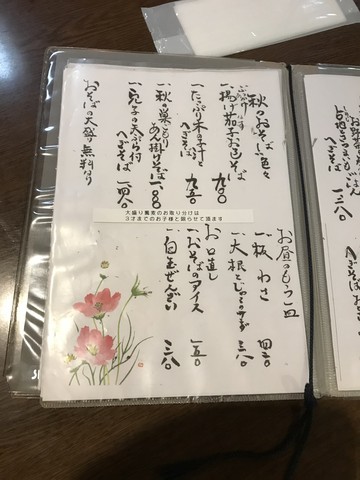 秋のおそば色々
ぶっかけ
一、揚げ茄子おろしそば 九〇〇
一、たっぷり木の子汁と
へぎそば 九五〇
一、秋の巣ごもり
あん掛けそば 一〇〇〇
へぎそば 一四八〇
おそばの大盛り無料なり
大盛り蕎麦のお取り分けは
3才までのお子様と限らせて頂ます
お昼のもう一皿
一、板わさ 四二〇
一、大根とじゃこのサラダ 三八〇
お口直し
一、おそばのアイス 一五〇
一、白玉ぜんざい 三八〇
へぎそば 一三八〇